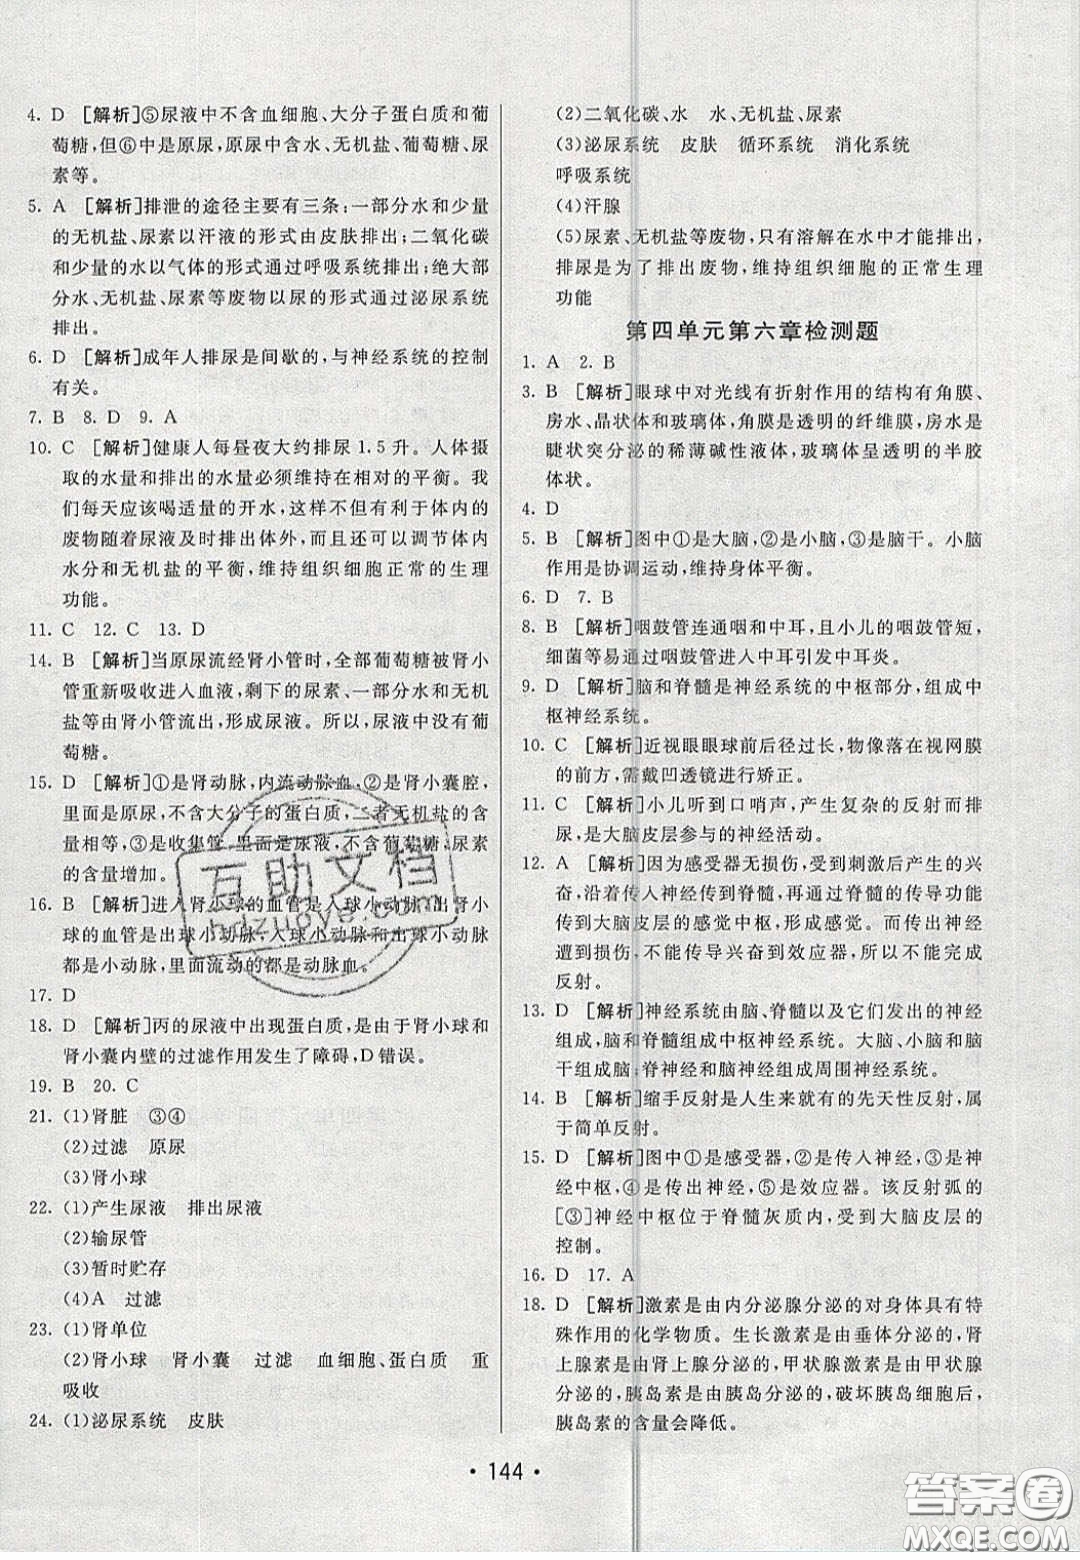 4. D [解析]⑤尿液中不含血细胞、大分子蛋白质和葡
萄糖,但⑥中是原尿,原尿中含水、无机盐、葡萄糖、尿
素等。
5. A [解析]排泄的途径主要有三条:一部分水和少量
的无机盐、尿素以汗液的形式由皮肤排出;二氧化碳
和少量的水以气体的形式通过呼吸系统排出;绝大部
分水、无机盐、尿素等废物以尿的形式通过泌尿系统
排出。
6. D [解析]成年人排尿是间歇的,与神经系统的控制
有关。
7. B 8. D 9. A
10. C [解析]健康人每昼夜大约排尿1.5升。人体摄
取的水量和排出的水量必须维持在相对的平衡。我
们每天应该喝适量的开水,这样不但有利于体内的
废物随着尿液及时排出体外,而且还可以调节体内
水分和无机盐的平衡,维持组织细胞正常的生理
功能。
11. C 12. C 13. D
14. B [解析]当原尿流经肾小管时,全部葡萄糖被肾小
管重新吸收进入血液,剩下的尿素、一部分水和无机
盐等由肾小管流出,形成尿液。所以,尿液中没有葡
萄糖。
15. D [解析]①是肾动脉,内流动脉血,②是肾小囊腔,
里面是原尿,不含大分子的蛋白质,二者无机盐的含
量相等,③是收集管,里面是尿液,不含葡萄糖,尿素
的含量增加。
16. B [解析]进入肾小球的血管是入球小动脉,出肾小
球的血管是出球小动脉,入球小动脉和出球小动脉
都是小动脉,里面流动的都是动脉血。
17. D
18. D [解析]丙的尿液中出现蛋白质,是由于肾小球和
肾小囊内壁的过滤作用发生了障碍,D错误。
19. B 20. C
21. (1)肾脏 ③④
(2)过滤 原尿
(3)肾小球
22. (1)产生尿液 排出尿液
(2)输尿管
(3)暂时贮存
(4)A 过滤
23. (1)肾单位
(2)肾小球 肾小囊 过滤 血细胞、蛋白质 重
吸收
24. (1)泌尿系统 皮肤
(2)二氧化碳、水 水、无机盐、尿素
(3)泌尿系统 皮肤 循环系统 消化系统
呼吸系统
(4)汗腺
(5)尿素、无机盐等废物,只有溶解在水中才能排出,
排尿是为了排出废物,维持组织细胞的正常生理
功能
第四单元第六章检测题
1. A 2. B
3. B [解析]眼球中对光线有折射作用的结构有角膜、
房水、晶状体和玻璃体,角膜是透明的纤维膜,房水是
睫状突分泌的稀薄碱性液体,玻璃体呈透明的半胶
体状。
4. D
5. B [解析]图中①是大脑,②是小脑,③是脑干。小脑
作用是协调运动,维持身体平衡。
6. D 7. B
8. B [解析]咽鼓管连通咽和中耳,且小儿的咽鼓管短,
细菌等易通过咽鼓管进入中耳引发中耳炎。
9. D [解析]脑和脊髓是神经系统的中枢部分,组成中
枢神经系统。
10. C [解析]近视眼眼球前后径过长,物像落在视网膜
的前方,需戴凹透镜进行矫正。
11. C [解析]小儿听到口哨声,产生复杂的反射而排
尿,是大脑皮层参与的神经活动。
12. A [解析]因为感受器无损伤,受到刺激后产生的兴
奋,沿着传入神经传到脊髓,再通过脊髓的传导功能
传到大脑皮层的感觉中枢,形成感觉。而传出神经
遭到损伤,不能传导兴奋到效应器,所以不能完成
反射。
13. D [解析]神经系统由脑、脊髓以及它们发出的神经
组成,脑和脊髓组成中枢神经系统。大脑、小脑和脑
干组成脑;脊神经和脑神经组成周围神经系统。
14. B [解析]缩手反射是人生来就有的先天性反射,属
于简单反射。
15. D [解析]图中①是感受器,②是传入神经,③是神
经中枢,④是传出神经,⑤是效应器。该反射弧的
[③]神经中枢位于脊髓灰质内,受到大脑皮层的
控制。
16. D 17. A
18. D [解析]激素是由内分泌腺分泌的对身体具有特
殊作用的化学物质。生长激素是由垂体分泌的,肾
上腺素是由肾上腺分泌的,甲状腺激素是由甲状腺
分泌的,胰岛素是由胰岛分泌的,破坏胰岛细胞后,
胰岛素的含量会降低。
• 144 •
互助文档
hdzuoye.com
答案圈
MXQE.COM